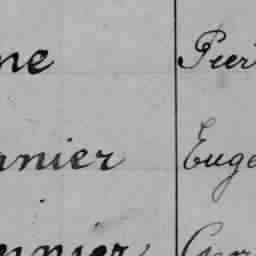 ne Pier
anier Euge
nnier